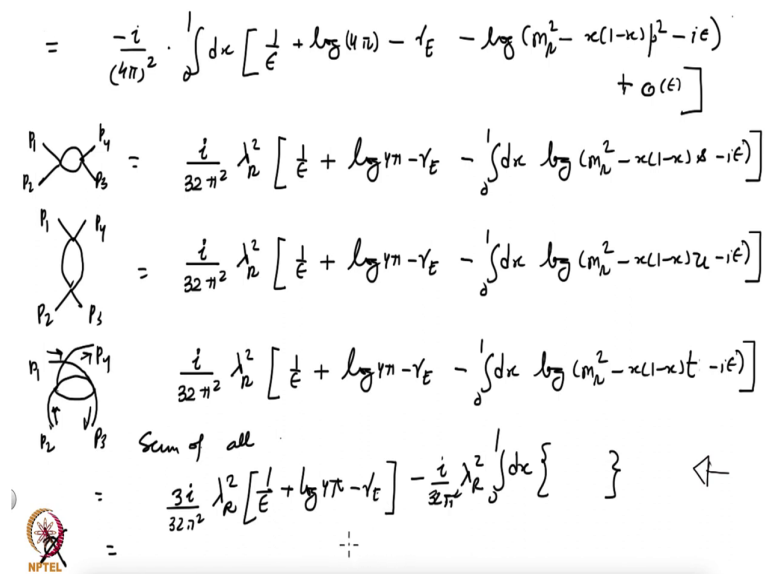 = -i/(4π)² · ∫₀¹ dx [ 1/ε + log(4π) - γE - log(m²R - x(1-x)p² - iε)
+ O(ε) ]
P1 P4 P2 P3 = i/32π² λ²R [ 1/ε + log4π - γE - ∫₀¹ dx log(m²R - x(1-x)s - iε) ]
P1 P4 P2 P3 = i/32π² λ²R [ 1/ε + log4π - γE - ∫₀¹ dx log(m²R - x(1-x)u - iε) ]
P1 P4 P2 P3 i/32π² λ²R [ 1/ε + log4π - γE - ∫₀¹ dx log(m²R - x(1-x)t - iε) ]
Sum of all
= 3i/32π² λ²R [ 1/ε + log4π - γE ] - i/32π² λ²R ∫₀¹ dx { } ←
=
NPTEL